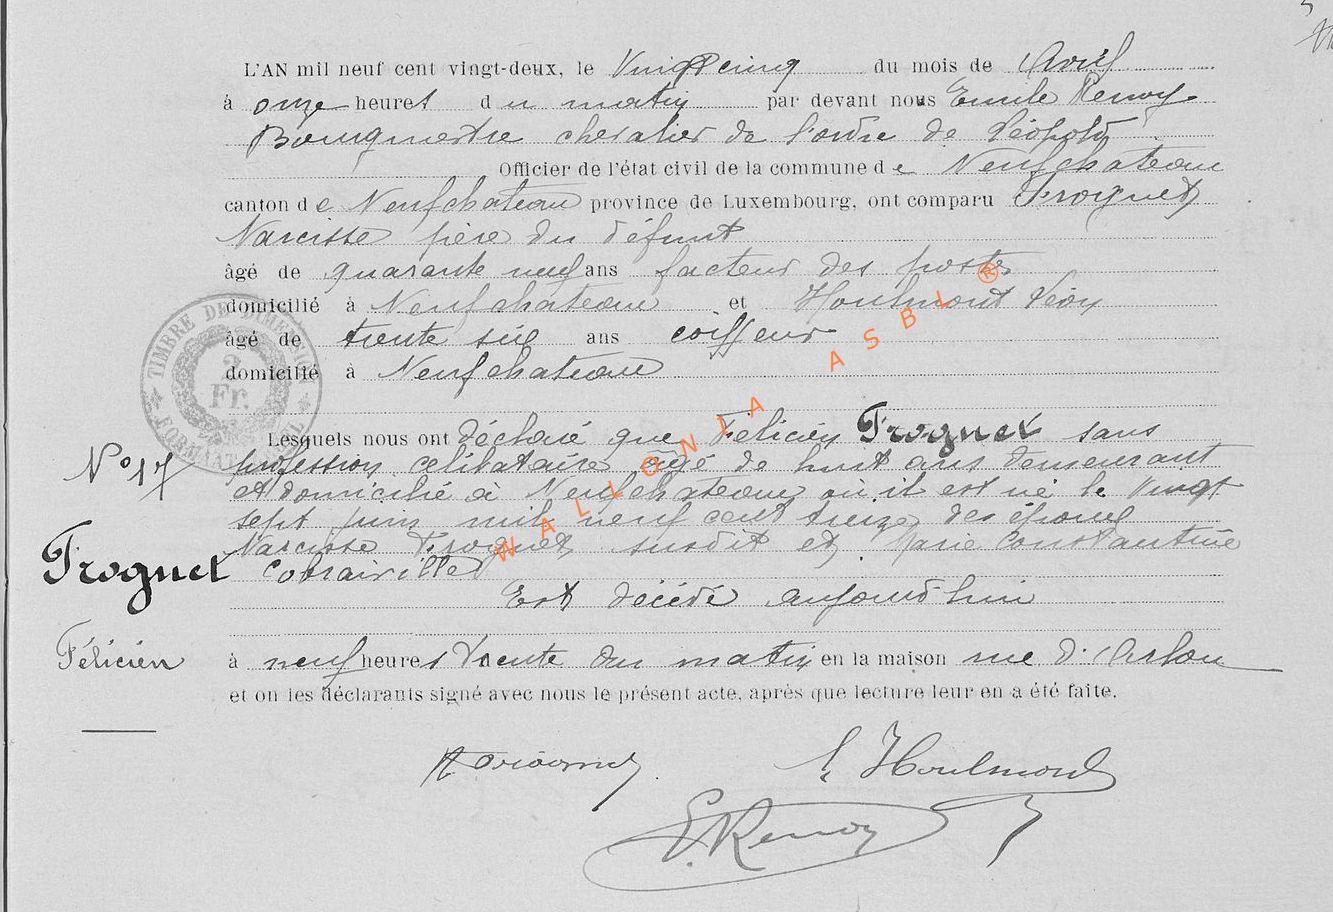 L'AN mil neuf cent vingt-deux, le Vingt cinq du mois de Avril
à onze heures du matin par devant nous Emile Renoy
Bourgmestre chevalier de l'ordre de Léopold
Officier de l'état civil de la commune de Neufchateau
canton de Neufchateau province de Luxembourg, ont comparu Trognet
Narcisse père du défunt
âgé de quarante neuf ans facteur des postes
domicilié à Neufchateau et Houlmont Léon
âgé de trente six ans coiffeur
domicilié à Neufchateau
TIMBRE DE DIMENSION
2 Fr.
FORMAATZEGEL
Lesquels nous ont déclaré que Félicien Trognet sans
N° 17
profession célibataire âgé de huit ans demeurant
et domicilié à Neufchateau où il est né le vingt
sept juin mil neuf cent treize des époux
Narcisse Trognet susdit et Marie Constantine
Trognet
Est décédé aujourd'hui
Félicien
à neuf heures trente du matin en la maison rue d'Arlon
et on les déclarants signé avec nous le présent acte, après que lecture leur en a été faite.
L. Houlmont
E. Renoy
WALLONIA ASBL ®